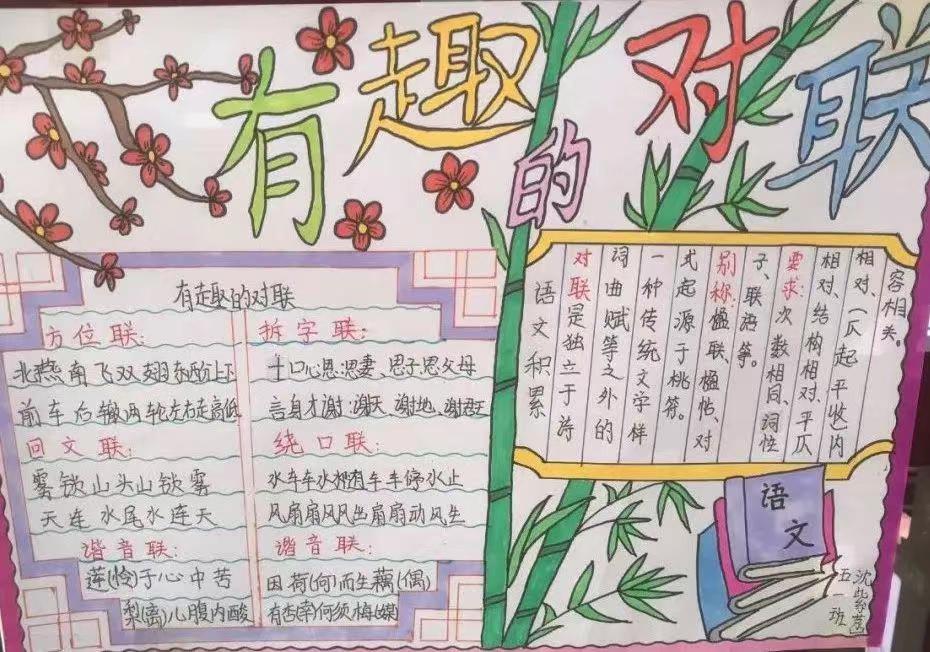 有趣的对联
有趣的对联
方位联:
北燕南飞双翅东西分上下
前车后辙两轮左右走高低
回文联:
雾锁山头山锁雾
天连水尾水连天
谐音联:
莲(怜)子心中苦
梨(离)儿腹内酸
拆字联:
士口心思:思妻、思子、思父母
言身才谢:谢天、谢地、谢君王
绕口联:
水车车水车车停水止
风扇扇风风出扇扇动风生
谐音联:
因荷(何)而生藕(偶)
有杏(幸)何须梅(媒)
语文积累
对联是独立于诗
词曲赋等之外的
一种传统文字样
式起源于桃符。
别称:楹联、楹帖、对
子、联语等。
要求:次数相同、词性
相对、结构相对、平仄
相对、(仄起平收)内
容相关。
语文
五一班
沈紫